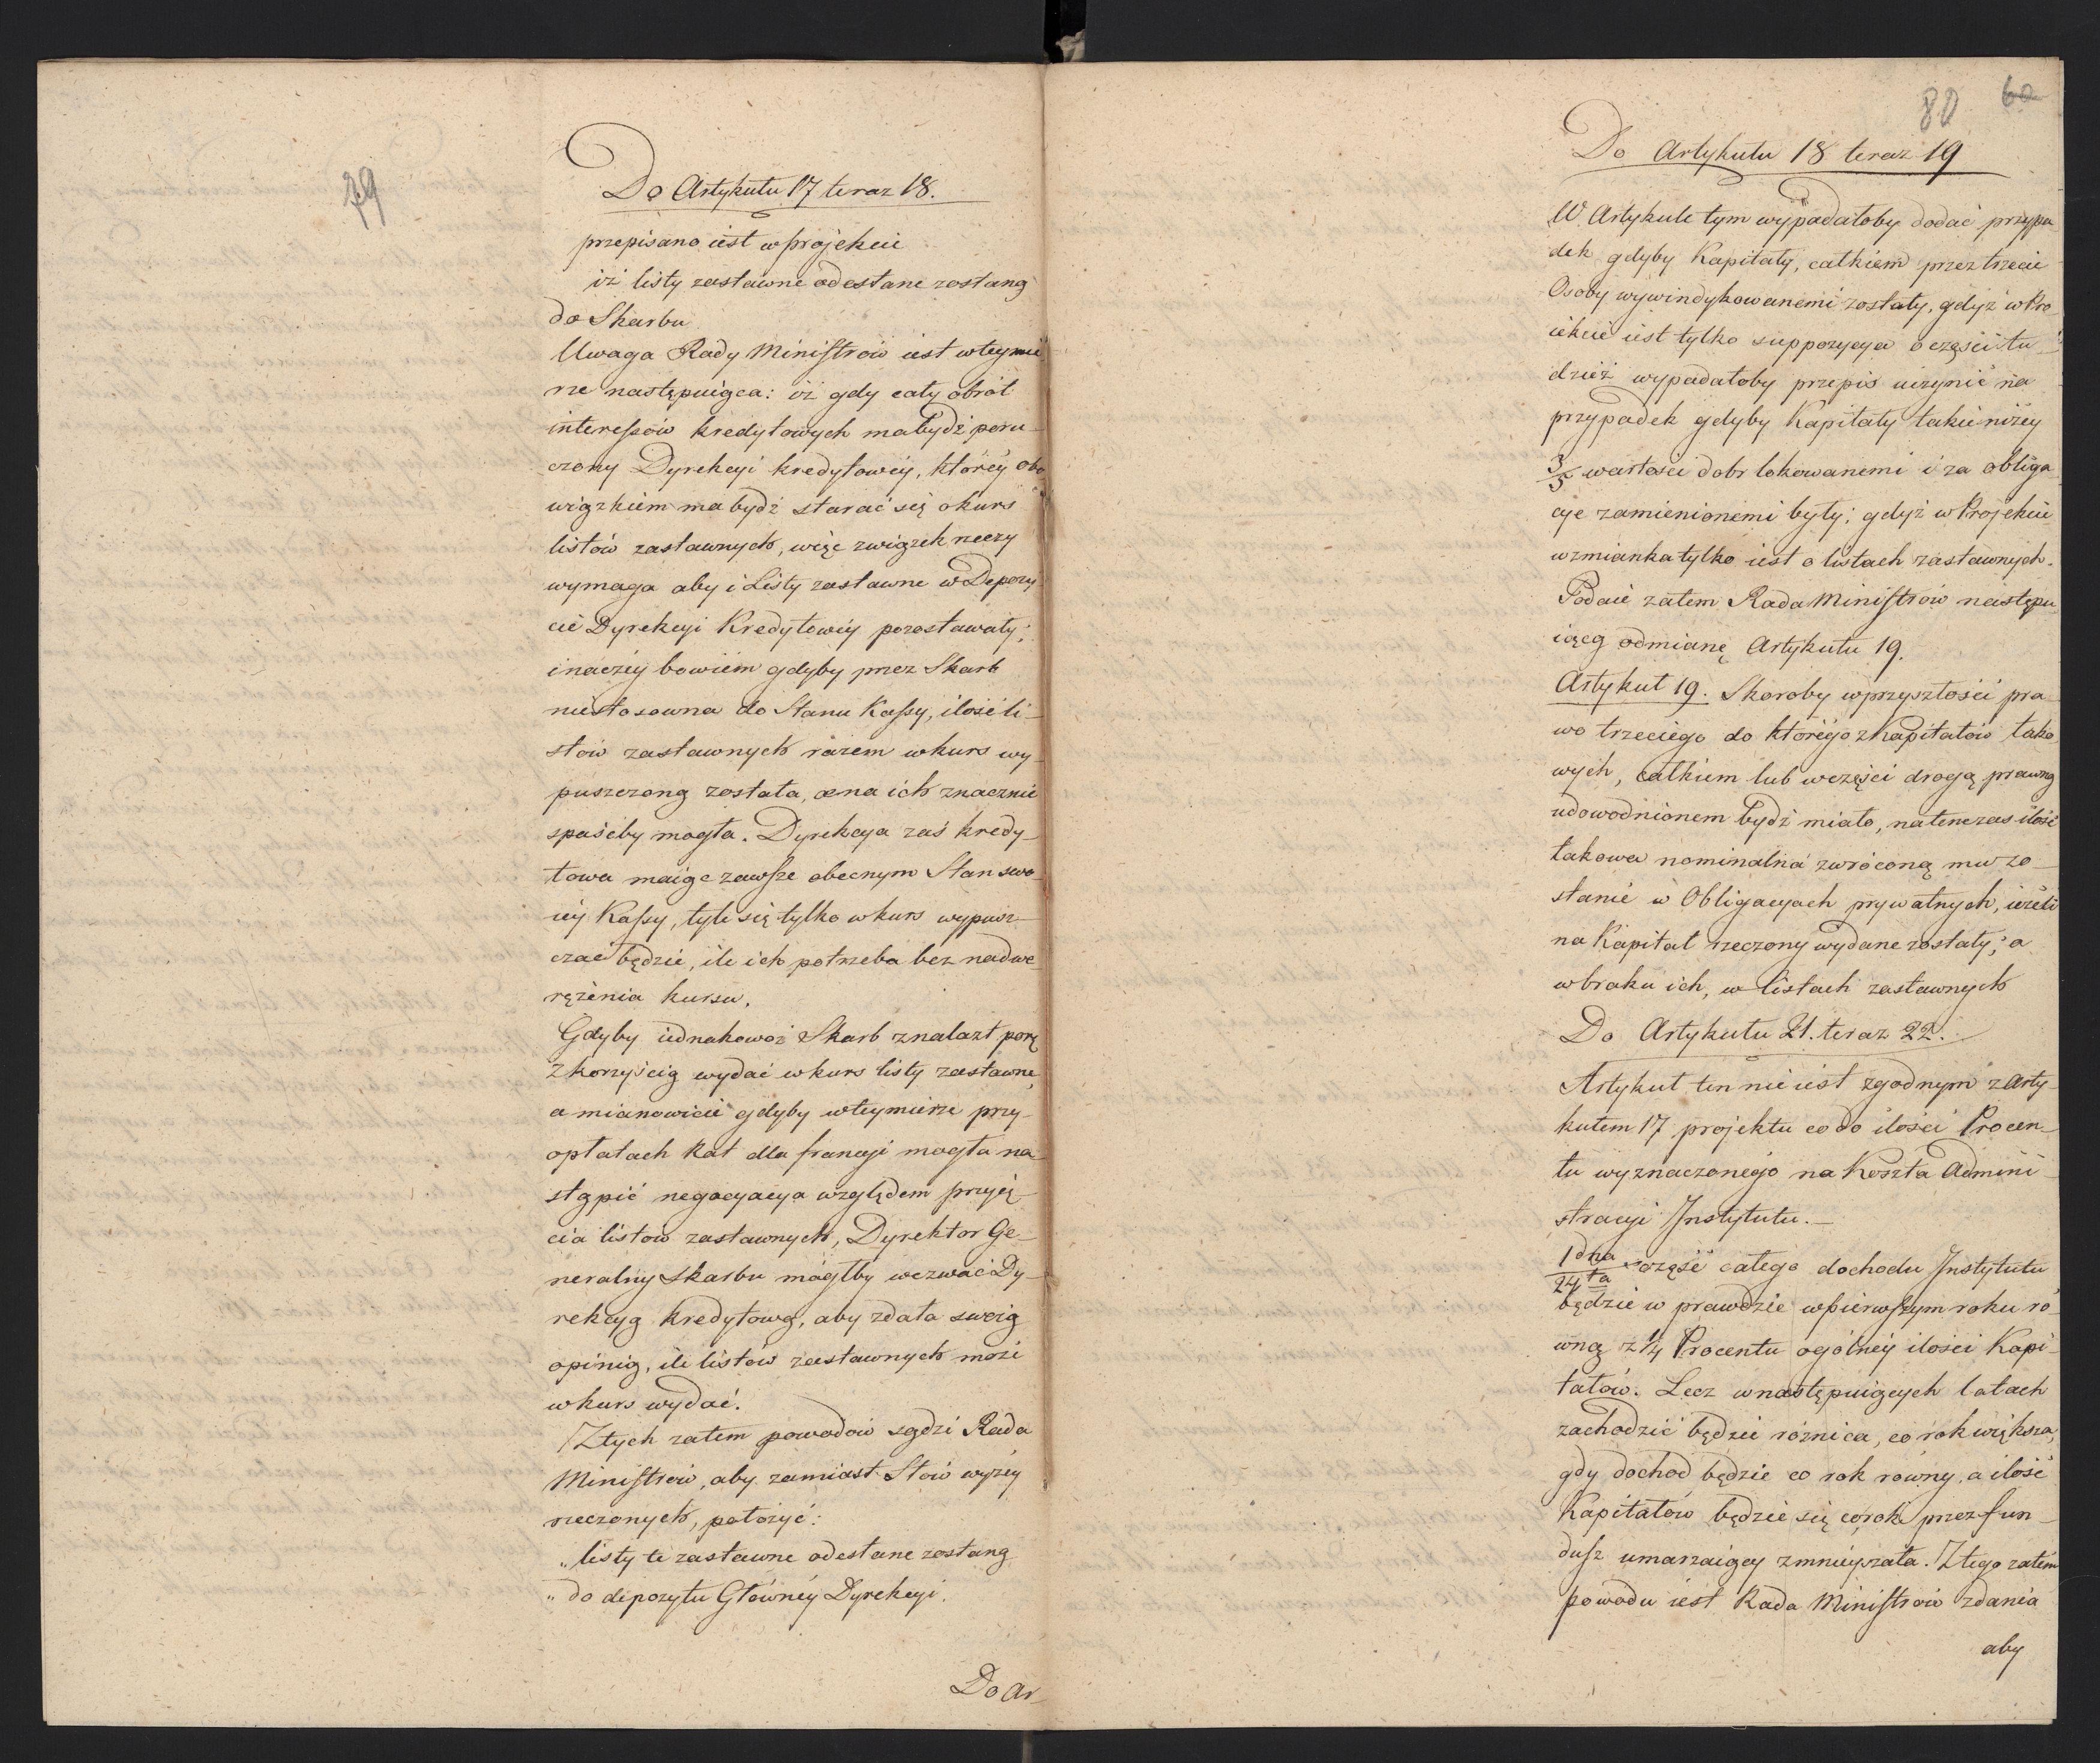 79
Do Artykułu 17 teraz 18.
przepisano iest w projekcie
iż listy zastawne odesłane zostaną
do Skarbu
Uwaga Rady Ministrów iest w tey mie
rze następuiąca: iż gdy cały obrót
interessów kredytowych ma bydź poru-
czony Dyrekcyi kredytowéy, któréy obo
wiązkiem ma bydź starać się o kurs
listów zastawnych, więc związek rzeczy
wymaga aby i Listy zastawne w Depozy
cie Dyrekcyi Kredytowéy pozostawały;
inaczéy bowiem gdyby przez Skarb
niestosowna do Stanu Kassy, ilość li-
stów zastawnych razem w kurs wy-
puszczoną została, cena ich znacznie
spaśćby mogła. Dyrekcya zaś kredy-
towa maiąc zawsze obecnym Stan swo-
iéy Kassy, tyle się tylko w kurs wypusz-
czać będzie, ile ich potrzeba bez nadwe
rężenia kursu.
Gdyby iednakowoż Skarb znalazł porę
z korzyścią wydać w kurs listy zastawne,
a mianowicie gdyby w tey mierze przy
opłatach Rat dla francyi mogła na-
stąpić negocyacya względem przyię-
cia listów zastawnych, Dyrektor Ge-
neralny Skarbu mógłby wezwać Dy-
rekcyą Kredytową, aby zdała swoią
opinią, ile listów zastawnych może
w kurs wydać.
Z tych zatem powodów sądzi Rada
Ministrów, aby zamiast Słów wyżéy
rzeczonych, położyć:
„listy te zastawne odesłane zostaną
„do depozytu Głównéy Dyrekcyi.
Do Ar-
80 60
Do Artykułu 18 teraz 19
W Artykule tym wypadałoby dodać przypa
dek gdyby Kapitały, całkiem przez trzecie
Osoby wywindykowanemi zostały, gdyż w Pro
iekcie iest tylko suppozycya o części tu-
dzież wypadałoby przepis uczynić na
przypadek gdyby Kapitały takie niżéy
3/5 wartości dobr lokowanemi i za obliga
cye zamienionemi były; gdyż w Projekcie
wzmianka tylko iest o listach zastawnych.
Podaie zatem Rada Ministrów następu
iącą odmianę Artykułu 19.
Artykuł 19. Skoroby w przyszłości pra
wo trzeciego do którégo z Kapitałów tako
wych, całkiem lub w części drogą prawną
udowodnionem bydź miało, natenczas ilość
takowa nominalna zwróconą mu zo-
stanie w Obligacyach prywatnych, ieżeli
na Kapitał rzeczony wydane zostały; a
w braku ich, w listach zastawnych
Do Artykułu 21. teraz 22.
Artykuł ten nie iest zgodnym z Arty-
kułem 17 projektu co do ilości Procen-
tu wyznaczonégo na Koszta Admini-
stracyi Instytutu.—
1dna/24ta część całego dochodu Instytutu
będzie w prawdzie w pierwszym roku ró-
wną z 1/4 Procentu ogólnéy ilości Kapi-
tałów. Lecz w następuiących latach
zachodzić będzie różnica, co rok większa,
gdy dochod będzie co rok równy, a ilość
Kapitałów będzie się co rok przez fun-
dusz umarzaiący zmnieyszała. Z tego zatém
powodu iest Rada Ministrów zdania
aby